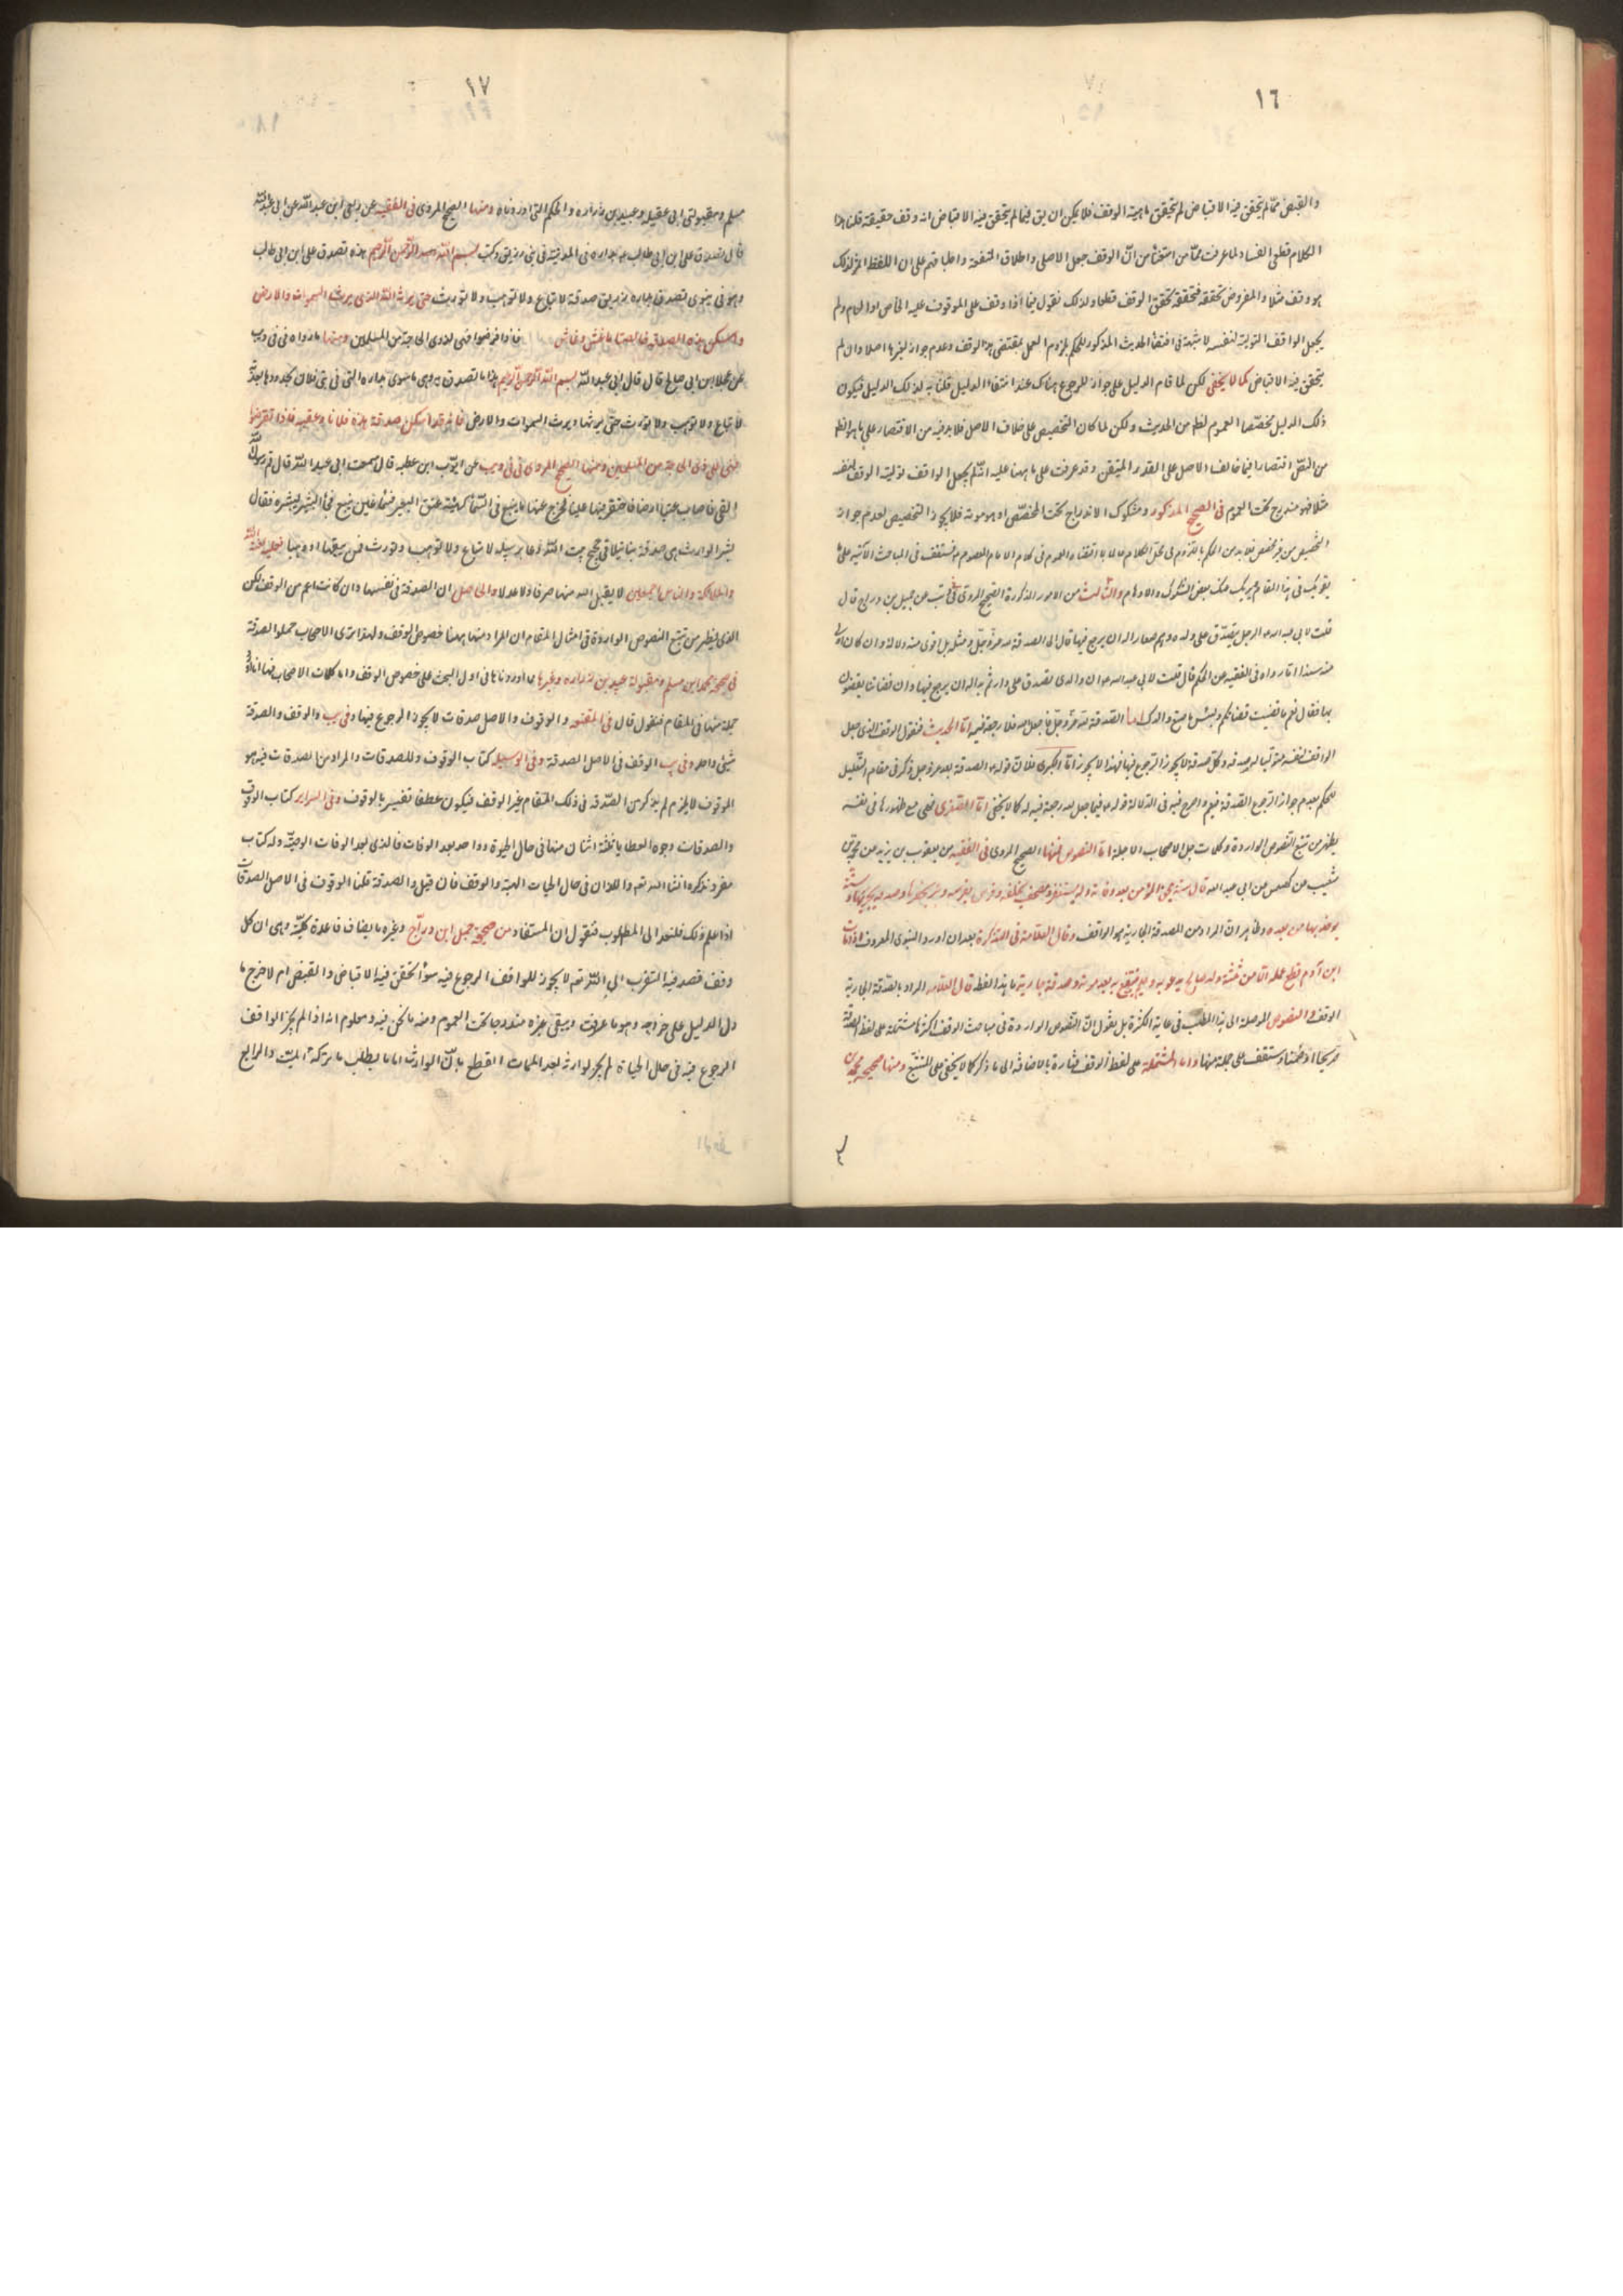 ١٦
والقبض ممّا لم يتحقق فيه الاقباض لم يتحقق ماهية الوقف فلا يمكن ان يق فيما لم يتحقق فيه الاقباض انه وقف حقيقة قلنا هذا
الكلام قطعى الفساد لما عرفت ممّا من انّ الوقف جعل الاصلى واطلاق المنفعة على ان اللفظ
هو وقف مثلا والمفروض تحققه فتحققه تحقق الوقف قطعا ولذلك نقول فيما اذا وقف على الموقوف عليه الخاص او العام ولم
يجعل الواقف التولية لنفسه لا شبهة فى اقتضاء الحديث المذكور للحكم بلزوم العمل بمقتضى هذا الوقف وعدم جواز تغيرها اصلا وان لم
يتحقق فيه الاقباض كما لا يخفى لكن لما قام الدليل على جواز الرجوع هناك عند انتفاء الدليل قلنا به لذلك الدليل فيكون
ذلك الدليل مخصّصا لعموم لظ من الحديث ولكن لما كان التخصيص على خلاف الاصل فلا بد فيه من الاقتصار على ما هو الظ
من النصّ اقتصارا فيما خالف الاصل على القدر المتيقن وقد عرفت على ما هيهنا عليه انّه لم يجعل الواقف تولية الوقف لنفسه
مثلا فهو مندرج تحت العموم فى الصحيح المذكور ومشكوك الاندراج تحت المخصّص او هو موته فلا يجوز التخصيص لعدم جواز
التخصيص من غير مخصص فلا بد من الحكم باللزوم فى محلّ الكلام عملا باقتضاء العموم فى كلام الامام المعصوم م وستقف فى المباحث الآتية على ما
يقويك فى هذا المقام غير بك عنك بعض الشكوك والاوهام والثالث من الامور المذكورة الصحيح المروى فى يب عن جميل بن دراج قال
قلت لابى عبد الله م الرجل يتصدّق على ولده وهم صغار اله ان يرجع فيها قال لا الصدقة لله عزّ وجلّ ومثله بل اقوى منه دلالة وان كان اد
منه سندا ما رواه فى الفقيه عن الحكم قال قلت لابى عبد الله م ان والدى تصدق على بدار ثم بدا له ان يرجع فيها وان قضاتنا يقضون
بها فقال نعم ما قضيت قضاتكم وبئس ما صنع والدك انما الصدقة لله عزّ وجلّ فما جعل لله فلا رجعة فيه امّا الحديث فنقول الوقف الذى جعل
الواقف لنفسه متوليا له صدقة وكلّ صدقة لا يجوز الرجوع فيها فهذا لا يجوز امّا الكبرى فلانّ قوله م الصدقة لله عز وجل ذكر فى مقام التعليل
للحكم بعدم جواز الرجوع الصدقة فيعم واصرح فيه فى الدلالة قوله م فما جعل لله رجعة فيه له كما لا يخفى امّا الصغرى فهى مع ظهورها فى نفسه
يظهر من تتبع النصوص الواردة وكلمات جلّ الاصحاب الاجلة امّا النصوص فمنها الصحيح المروى فى الفقيه عن يعقوب بن يزيد عن محمد بن
شعيب عن كهمس عن ابى عبد الله قال ستة تلحق المؤمن بعد وفاته ولد يستغفر له ومصحف يخلفه وغرس يغرسه وبئر يحفرها وصدقة يجريها وسنّة
يؤخذ بها من بعده وظاهر انّ المراد من الصدقة الجارية هو الواقف وقال العلامة فى التذكرة بعد ان اورد النبوى المعروف اذا مات
ابن آدم قطع عمله الا من ثلثة ولد صالح يدعو به وعلم ينتفع به بعد موته وصدقة جارية ما هذا لفظه قال العلماء المراد بالصدقة الجارية
الوقف والنصوص الموصلة الى هذا المطلب فى غاية الكثرة بل نقول انّ النصوص الواردة فى مباحث الوقف اكثرها مشتملة على لفظ الصدقة
صريحا او ضمنا وستقف على جملة منها واما المشتملة على لفظ الوقف فنادرة بالاضافة الى ما ذكر كما لا يخفى على المتتبع ومنها صحيحة محمد بن
١٧
مسلم ومقبولتى ابى عقيله وعبيد بن زراره والحكم التى اوردناه ومنها الصحيح المروى فى الفقيه عن ربعى ابن عبد الله عن ابى عبد الله
قال تصدق على ابن ابى طالب م بداره فى المدينة فى بنى زريق وكتب بسم الله الرّحمن الرّحيم هذه تصدق على ابن ابى طالب
وهو حى سوى تصدق بداره بنى زريق صدقة لا تباع ولا توهب ولا تورث حتى يرث الله الذى يرث السموات والارض
واسكن هذه الصدقة خالاته ما عشن وعاش فاذا انقرضوا فهى لذوى الحاجة من المسلمين ومنها ما رواه فى فى ويب
عن عجلان ابى صالح قال قال ابى عبد الله بسم الله الرّحمن الرّحيم هذا ما تصدق به وهى ما سوى بداره التى فى بنى فلان بحدودها صدقة
لا تباع ولا توهب ولا تورث حتى يرثها وارث السموات والارض فانه قد اسكن صدقة هذه فلانا وعقبه فاذا انقرضوا
فهى على ذى الحاجة من المسلمين ومنها الصحيح المروى فى فى ويب عن ايّوب ابن عطيه قال سمعت ابى عبد الله قال قسم رسول الله
الفى فاصاب عليّا ارضا فاحتفر فيها عينا فخرج عنها ماء ينبع فى السّماء كهيئة عنق البعير فسمّاه عين ينبع فجاء البشير ليبشره فقال
بشّر الوارث هى صدقة بتا بتلا فى حجيج بيت الله وعابر سبيله لا تباع ولا توهب ولا تورث فمن باعها او وهبها فعليه لعنة الله
والملائكة والناس اجمعين لا يقبل الله منها صرفا ولا عدلا والحاصل ان الصدقة فى نفسها وان كانت اعم من الوقف لكن
الذى يظهر من تتبع النصوص الواردة فى امثال المقام ان المراد منها هيهنا خصوص الوقف ولهذا ترى الاصحاب حملوا الصدقة
فى صحيحة محمد ابن مسلم ومقبولة عبيد بن زراره وغيرها مما اوردناها فى اول البحث على خصوص الوقف واما كلمات الاصحاب فها انا اذكر
جملة منها فى المقام فنقول قال فى المقنعه والوقوف والاصل صدقات لا يجوز الرجوع فيها وفى يب والوقف والصدقة
شيئ واحد وفى يب الوقف فى الاصل الصدقة وفى الوسيله كتاب الوقوف والصدقات والمراد من الصدقات فيه هو
الوقوف لا يلزم لم يذكر من الصّدقة فى ذلك المقام غير الوقف فيكون عطفا تفسير بالوقوف وفى السراير كتاب الوقوف
والصدقات وجوه العطايا ثلثة اثنان منها فى حال الحيوة وواحد بعد الوفات فالذى بعد الوفات الوصيّة وله كتاب
مفرد نذكره انشاء الله تعم واللذان فى حال الحيات الهبة والوقف فان قيل والصدقة قلنا الوقوف فى الاصل الصدقات
اذا علم ذلك فلنعد الى المطلوب فنقول ان المستفاد من صحيحة جميل ابن درّاج وغيره ما يضاف قاعدة كليّة وهى ان كل
وقف قصد فيه التقرب الى الله تعم لا يجوز للواقف الرجوع فيه سوآء تحقق فيه الاقباض والقبض ام لا خرج ما
دل الدليل على خراجه وهو ما عرفت ويبقى غيره مندرجا تحت العموم ومنه ما نحن فيه ومعلوم انه اذا لم يجز الواقف
الرجوع فيه فى حال الحياة لم يجز لوارثه بعد الممات القطع بانّ الوارث اما ما يطلب ما تركه الميّت والرابع